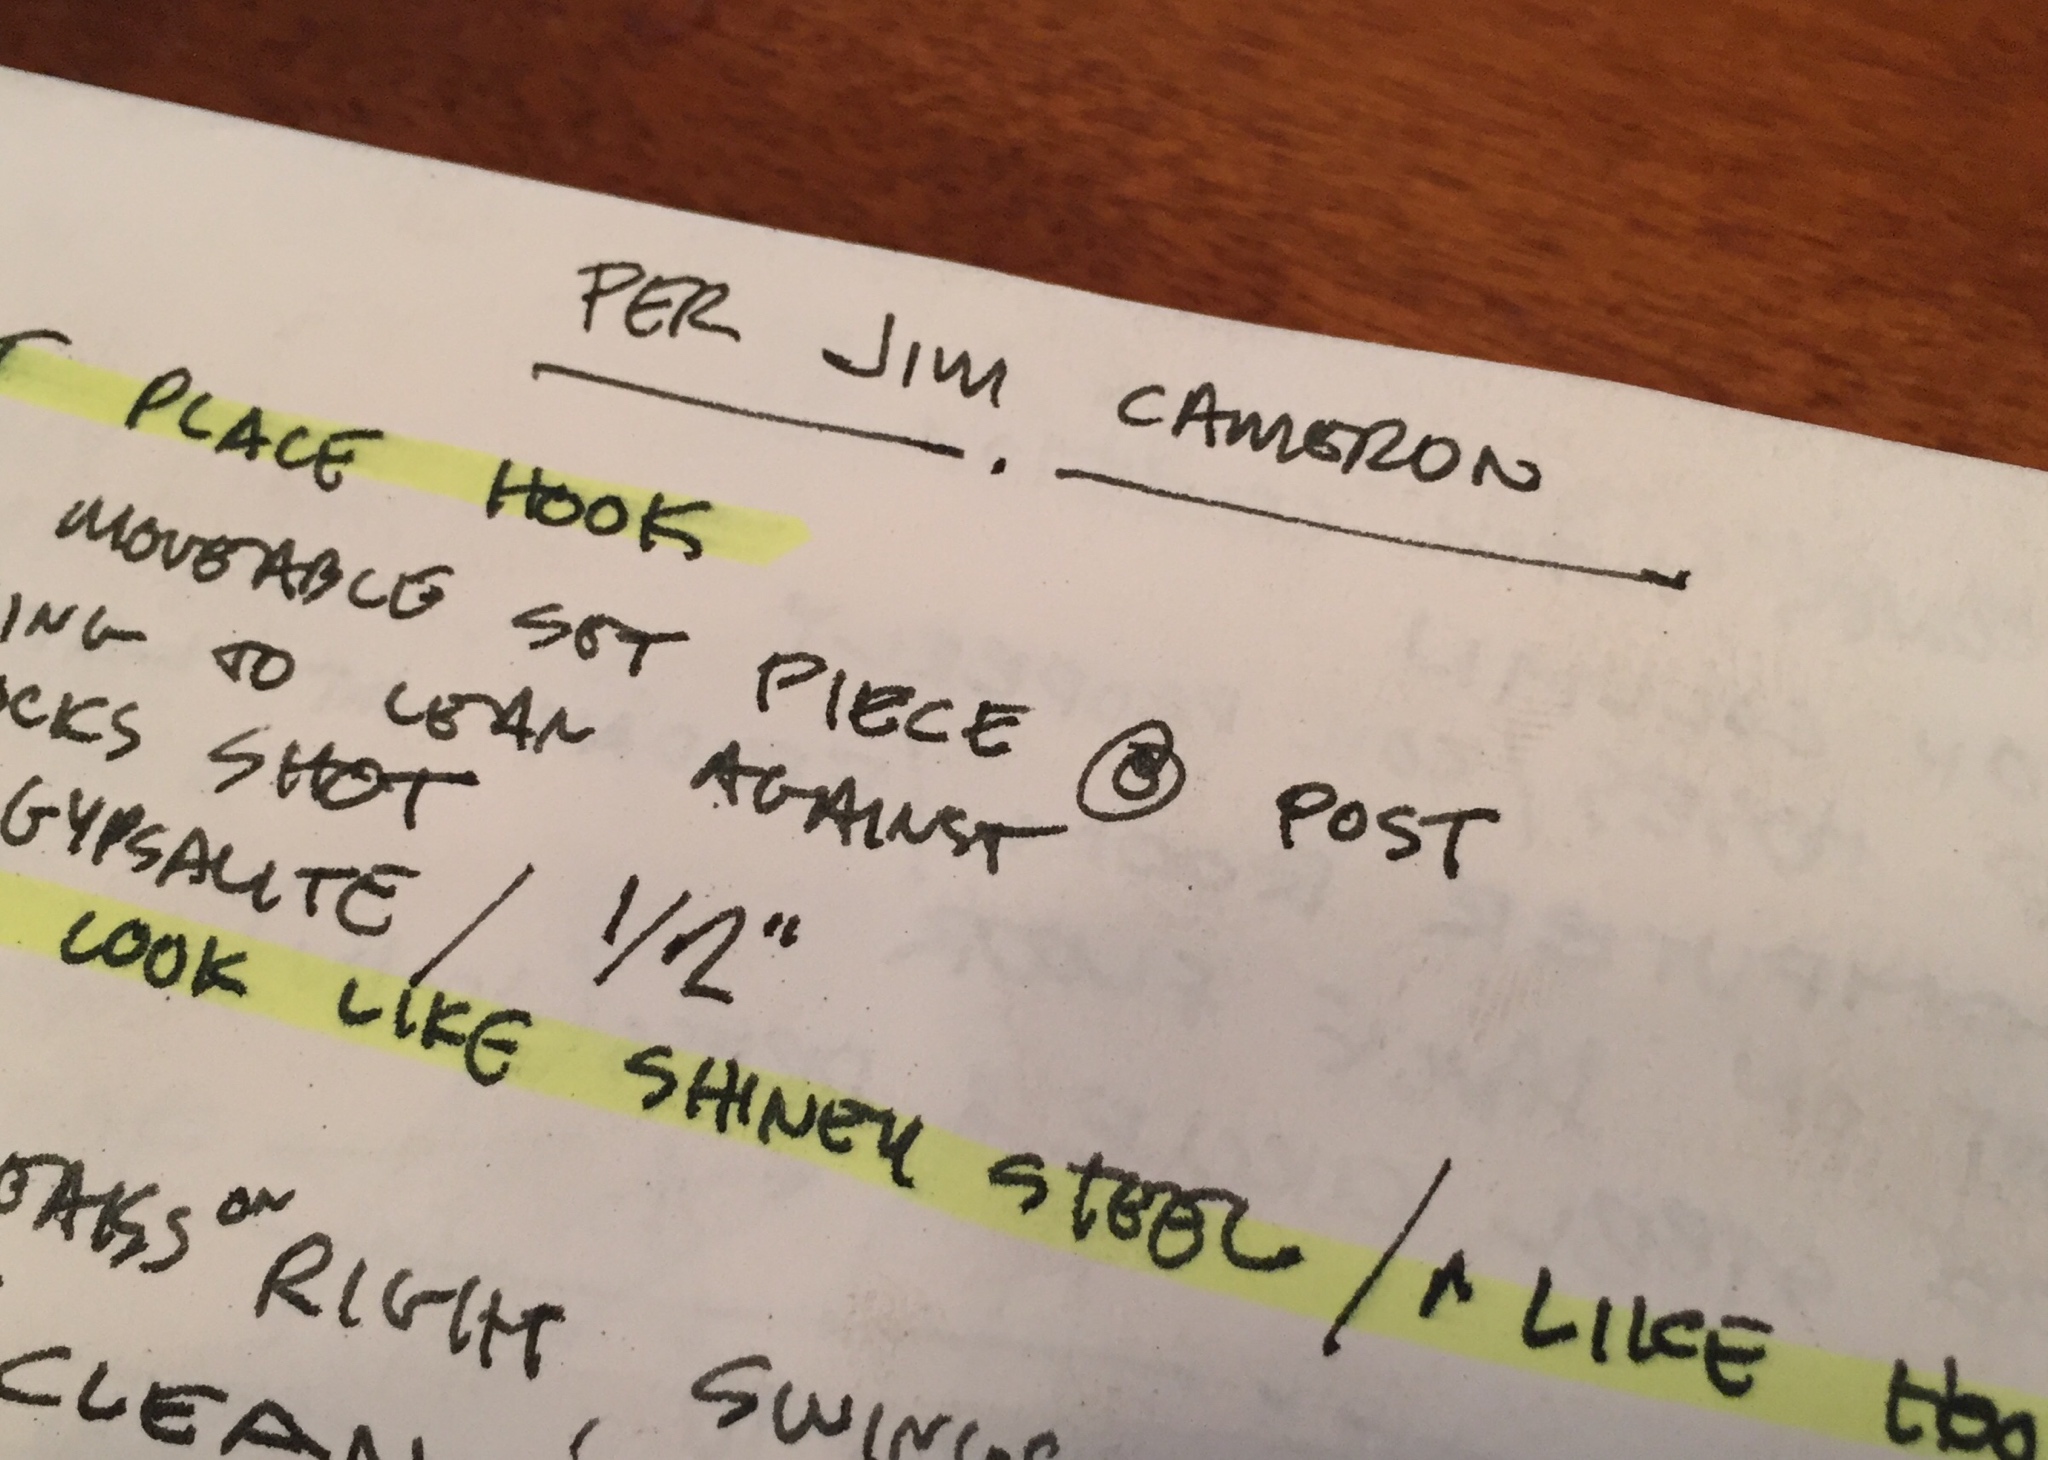 PER JIM CAMERON
PLACE HOOK
MOVEABLE SET PIECE @ POST
ING TO LEAN AGAINST
OCKS SHOT
GYPSALITE / 1/2"
LOOK LIKE SHINEY STEEL / A LIKE HOO
EAKS ON RIGHT SWING
CLEAN